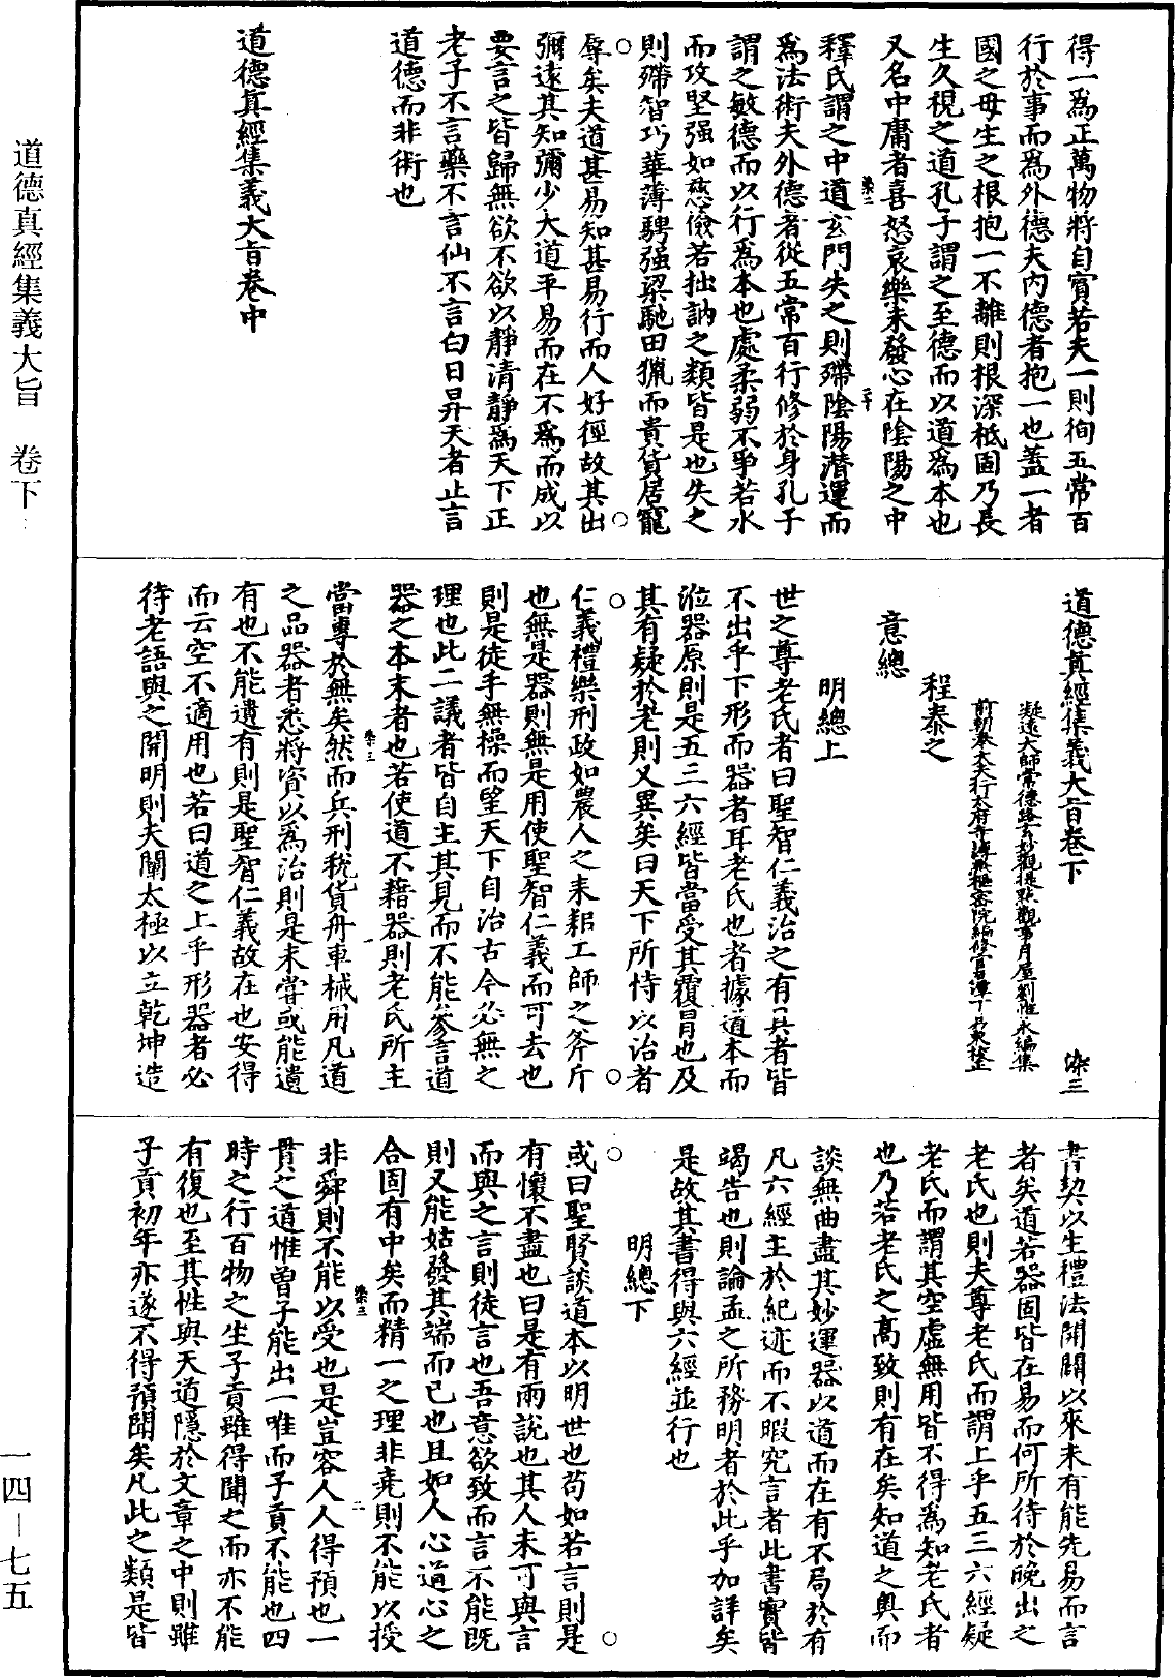 道德真經集義大旨　卷下
一四—七五
得一爲正萬物將自賓若夫一則徇五常百
行於事而爲外德夫內德者抱一也蓋一者
國之母生之根抱一不離則根深柢固乃長
生久視之道孔子謂之至德而以道爲本也
又名中庸者喜怒哀樂未發心在陰陽之中
釋氏謂之中道玄門失之則殢陰陽潛運而
爲法術夫外德者從五常百行修於身孔子
謂之敏德而以行爲本也處柔弱不爭若水
而攻堅强如慈儉若拙訥之類皆是也失之
則殢智巧華薄騁强梁馳田獵而貴貨居寵
辱矣夫道甚易知甚易行而人好徑故其出
彌遠其知彌少大道平易而在不爲而成以
要言之皆歸無欲不欲以靜清靜爲天下正
老子不言藥不言仙不言白日昇天者止言
道德而非術也
道德真經集義大旨卷中
道德真經集義大旨卷下　染三
凝遠大師常德路玄妙觀提點觀事月屋劉惟永編集
前朝奉大夫行太府寺簿兼樞密院編修官石潭丁易東校正
程泰之
意總
明總上
世之尊老氏者曰聖智仁義治之有具者皆
不出乎下形而器者耳老氏也者據道本而
涖器原則是五三六經皆當受其覆冒也及
其有疑於老則又異矣曰天下所恃以治者
仁義禮樂刑政如農人之耒耜工師之斧斤
也無是器則無是用使聖智仁義而可去也
則是徒手無操而望天下自治古今必無之
理也此二議者皆自主其見而不能參言道
器之本末者也若使道不藉器則老氏所主
當專於無矣然而兵刑稅貨舟車械用凡道
之品器者悉將資以爲治則是未嘗或能遺
有也不能遺有則是聖智仁義故在也安得
而云空不適用也若曰道之上乎形器者必
待老語與之開明則夫闡太極以立乾坤造
書契以生禮法開闢以來未有能先易而言
者矣道若器固皆在易而何所待於晚出之
老氏也則夫尊老氏而謂上乎五三六經疑
老氏而謂其空虛無用皆不得爲知老氏者
也乃若老氏之高致則有在矣知道之奧而
談無曲盡其妙運器以道而在有不局於有
凡六經主於紀迹而不暇究言者此書實皆
竭告也則論孟之所務明者於此乎加詳矣
是故其書得與六經並行也
明總下
或曰聖賢談道本以明世也苟如若言則是
有懷不盡也曰是有兩說也其人未可與言
而與之言則徒言也吾意欲致而言不能既
則又能姑發其端而已也且如人心道心之
合固有中矣而精一之理非堯則不能以授
非舜則不能以受也是豈容人人得預也一
貫之道惟曾子能出一唯而子貢不能也四
時之行百物之生子貢雖得聞之而亦不能
有復也至其性與天道隱於文章之中則雖
子貢初年亦遂不得預聞矣凡此之類是皆